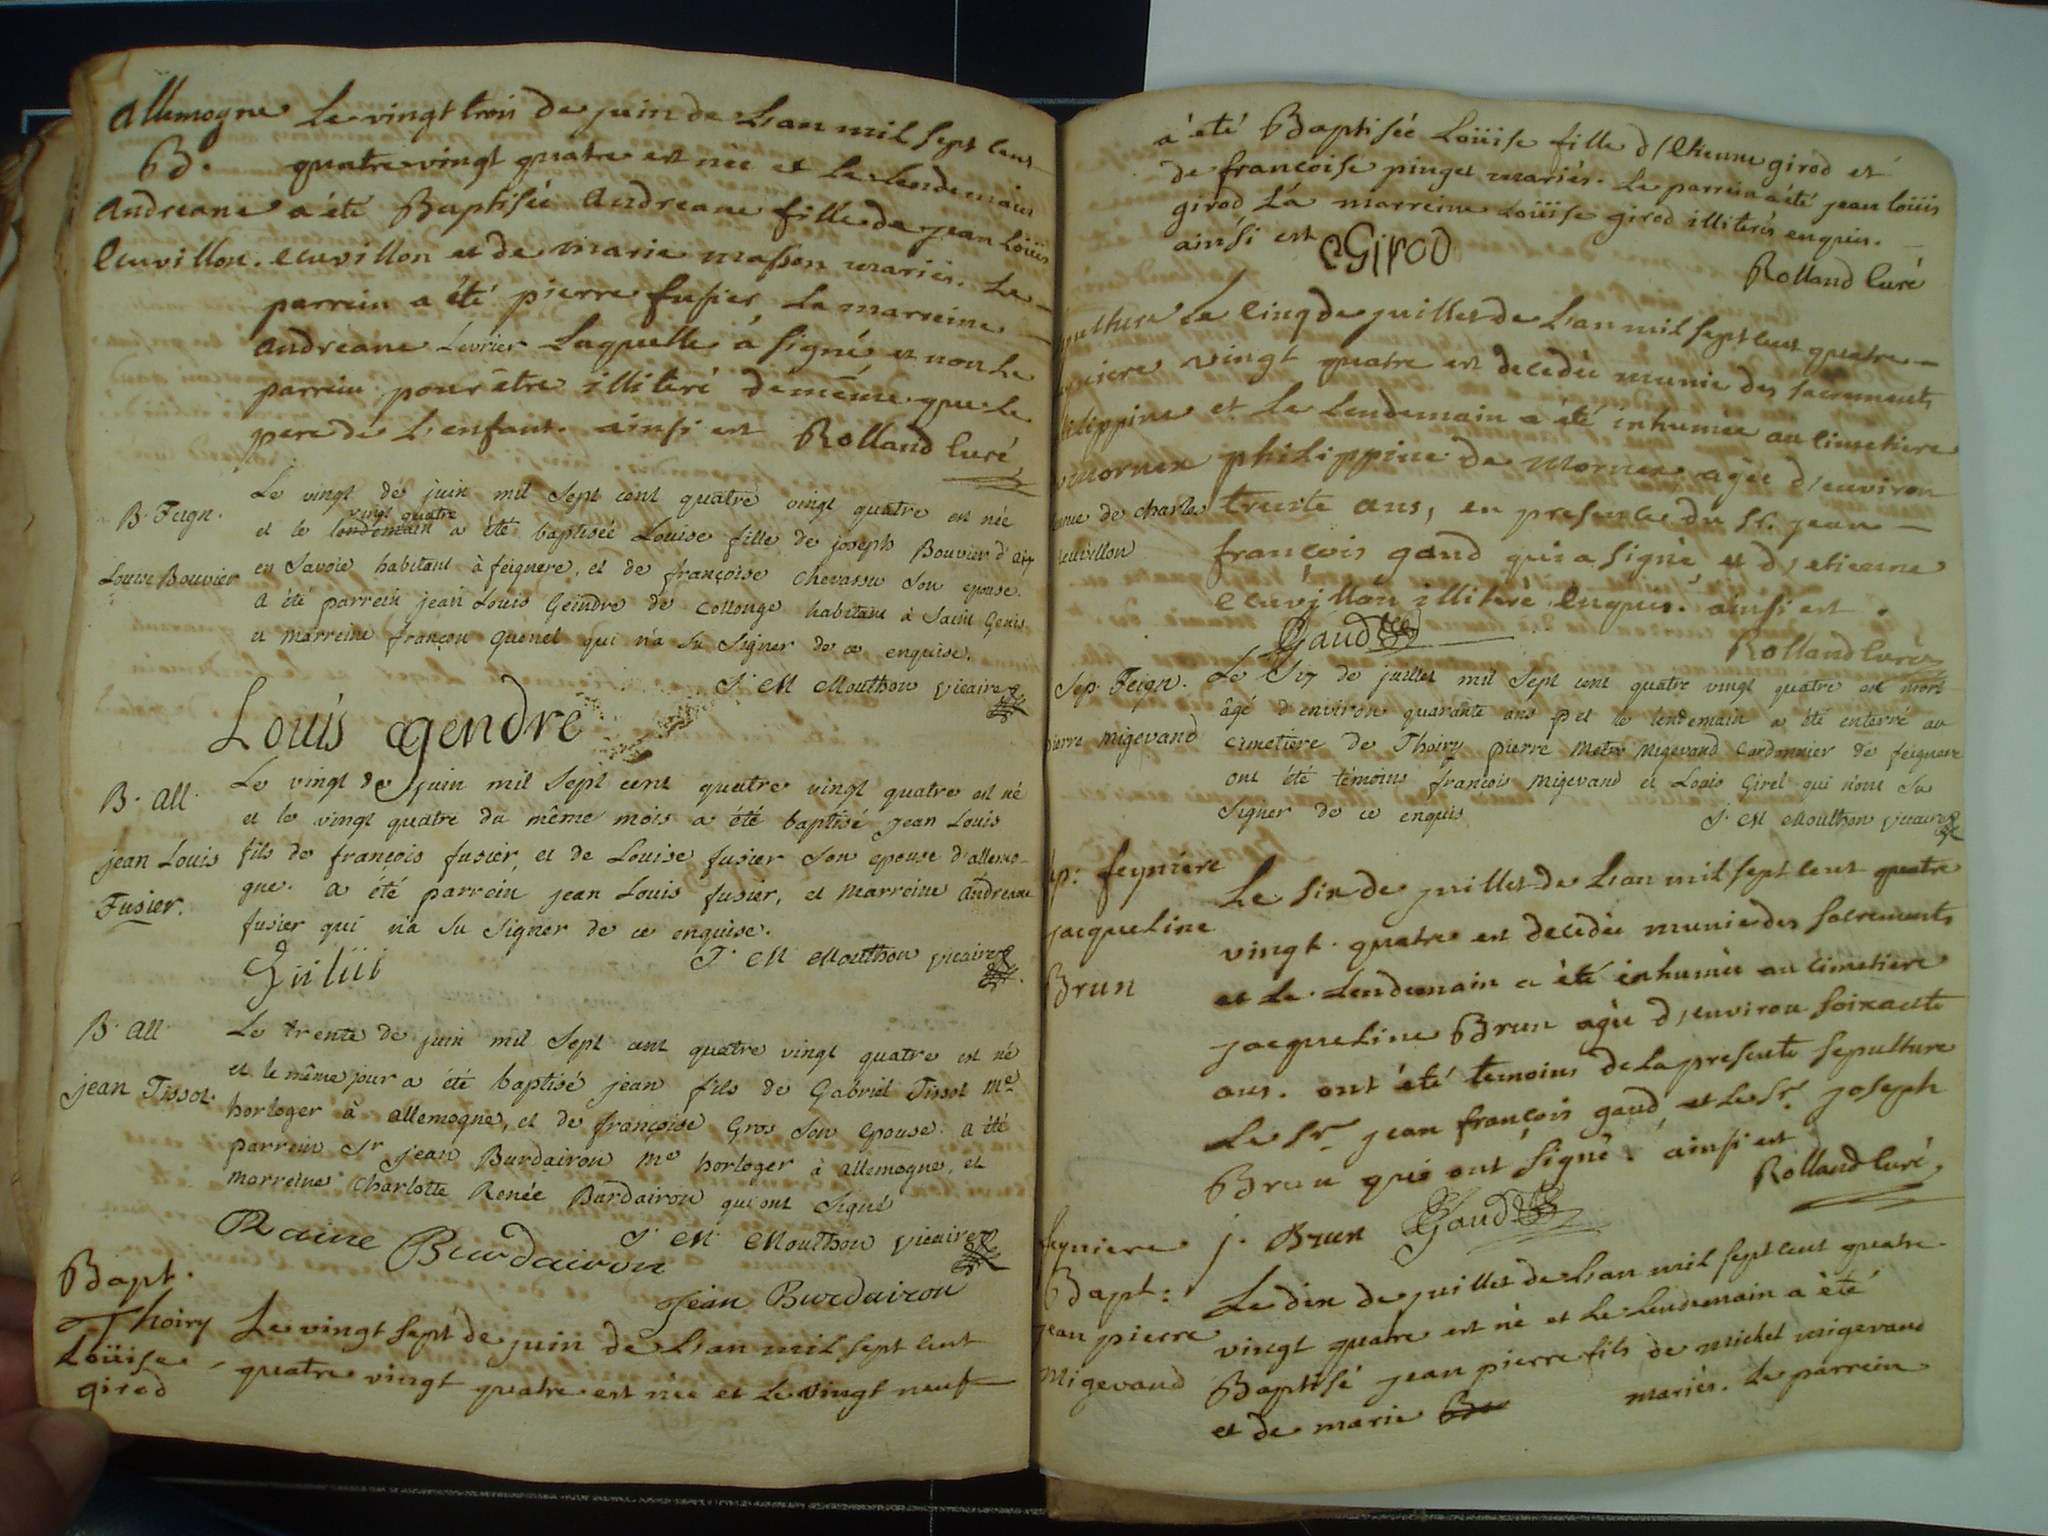 Allemogne Le vingt trois de juin de L'an mil sept cent
Bd. quatre vingt quatre est née et le lendemain
Andreane a été Baptisée Andreane fille de jean Loüis
Ecuvillon. Ecuvillon et de marie masson mariés. Le
parrein a été pierre fusier, La marreine
Andreane Levrier Laquelle à signé et non le
parrein pour être illiteré de même que le
pere de L'enfant. ainsi est Rolland Curé
B. Feign. Le vingt de juin mil sept cent quatre vingt quatre est née
vingt quatre
et le lendemain a été baptisée Louise fille de joseph Bouvier d'aix
Louise Bouvier en Savoie habitant à feignere, et de françoise Chevassu son epouse.
a été parrein jean Louis Geindre de Collonge habitant à Saint Genis
et marreine françon quenet qui n'a su signer de ce enquise.
J. M Mouthon vicaire
Louis gendre
B. all. Le vingt de juin mil sept cent quatre vingt quatre est né
et le vingt quatre du même mois a été baptisé jean Louis
jean Louis fils de françois fusier et de Louise fusier son epouse d'allemo-
Fusier. gne. a été parrein jean Louis fusier, et marreine andreane
fusier qui n'a su signer de ce enquise.
J. M Mouthon vicaire
B. all. Le trente de juin mil sept cent quatre vingt quatre est né
et le même jour a été baptisé jean fils de Gabriel Tissot me
jean Tissot. horloger à allemogne, et de françoise Gros son epouse. a été
parrein Sr jean Burdairon me horloger à allemogne, et
marreine Charlotte Renée Burdairon qui ont signé
Raine Burdairon J. M. Mouthon vicaire
jean Burdairon
Bapt.
Thoiry Le vingt sept de juin de L'an mil sept cent
Loüise quatre vingt quatre est née et le vingt neuf
girod
à été Baptisée Loüise fille d'Etienne girod et
de françoise pinget mariés. Le parrein a été jean loüis
girod La marreine Loüise girod illiterés enquis.
ainsi est Girod
Rolland Curé
pulture Le Cinq de juillet de L'an mil sept cent quatre
vingt quatre est decedée munie des sacrements
philippine et Le Lendemain a été inhumée au Cimetiere
de mornex philippine de mornex agée d'environ
femme de charle trente ans, en presence du sr. jean
Ecuvillon françois gaud qui a signé, et d'etienne
Ecuvillon illiteré enquis. ainsi est.
Gaud
Rolland Curé
Sep. Feign. Le Six de juillet mil Sept cent quatre vingt quatre est mort
âgé d'environ quarante ans et le lendemain a été enterré au
pierre migevand Cimetiere de Thoiry pierre migevand Cordonnier de feignere
ont été témoins françois migevand et Louis Girel qui n'ont su
signer de ce enquis J. M Mouthon vicaire
Sep: feyniere Le six de juillet de L'an mil sept cent quatre
jacqueline vingt quatre est decedée munie des sacrements
Brun et Le Lendemain a été inhumée au Cimetiere
jacqueline Brun agée d'environ soixante
ans. ont été temoins de la presente sepulture
Le sr. jean françois gaud et Le sr. joseph
Brun qui ont signé. ainsi est
Rolland Curé
j. Brun Gaud
feyniere
Bapt: Le dix de juillet de L'an mil sept cent quatre
jean pierre vingt quatre est né et Le Lendemain a été
migevand Baptisé jean pierre fils de michel migevand
et de marie mariés. Le parrein